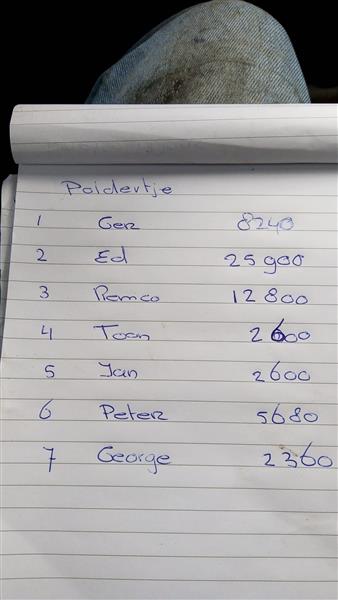 Poldertje
1 Ger 8240
2 Ed 25900
3 Remco 12800
4 Toon 2600
5 Jan 2600
6 Peter 5680
7 George 2360